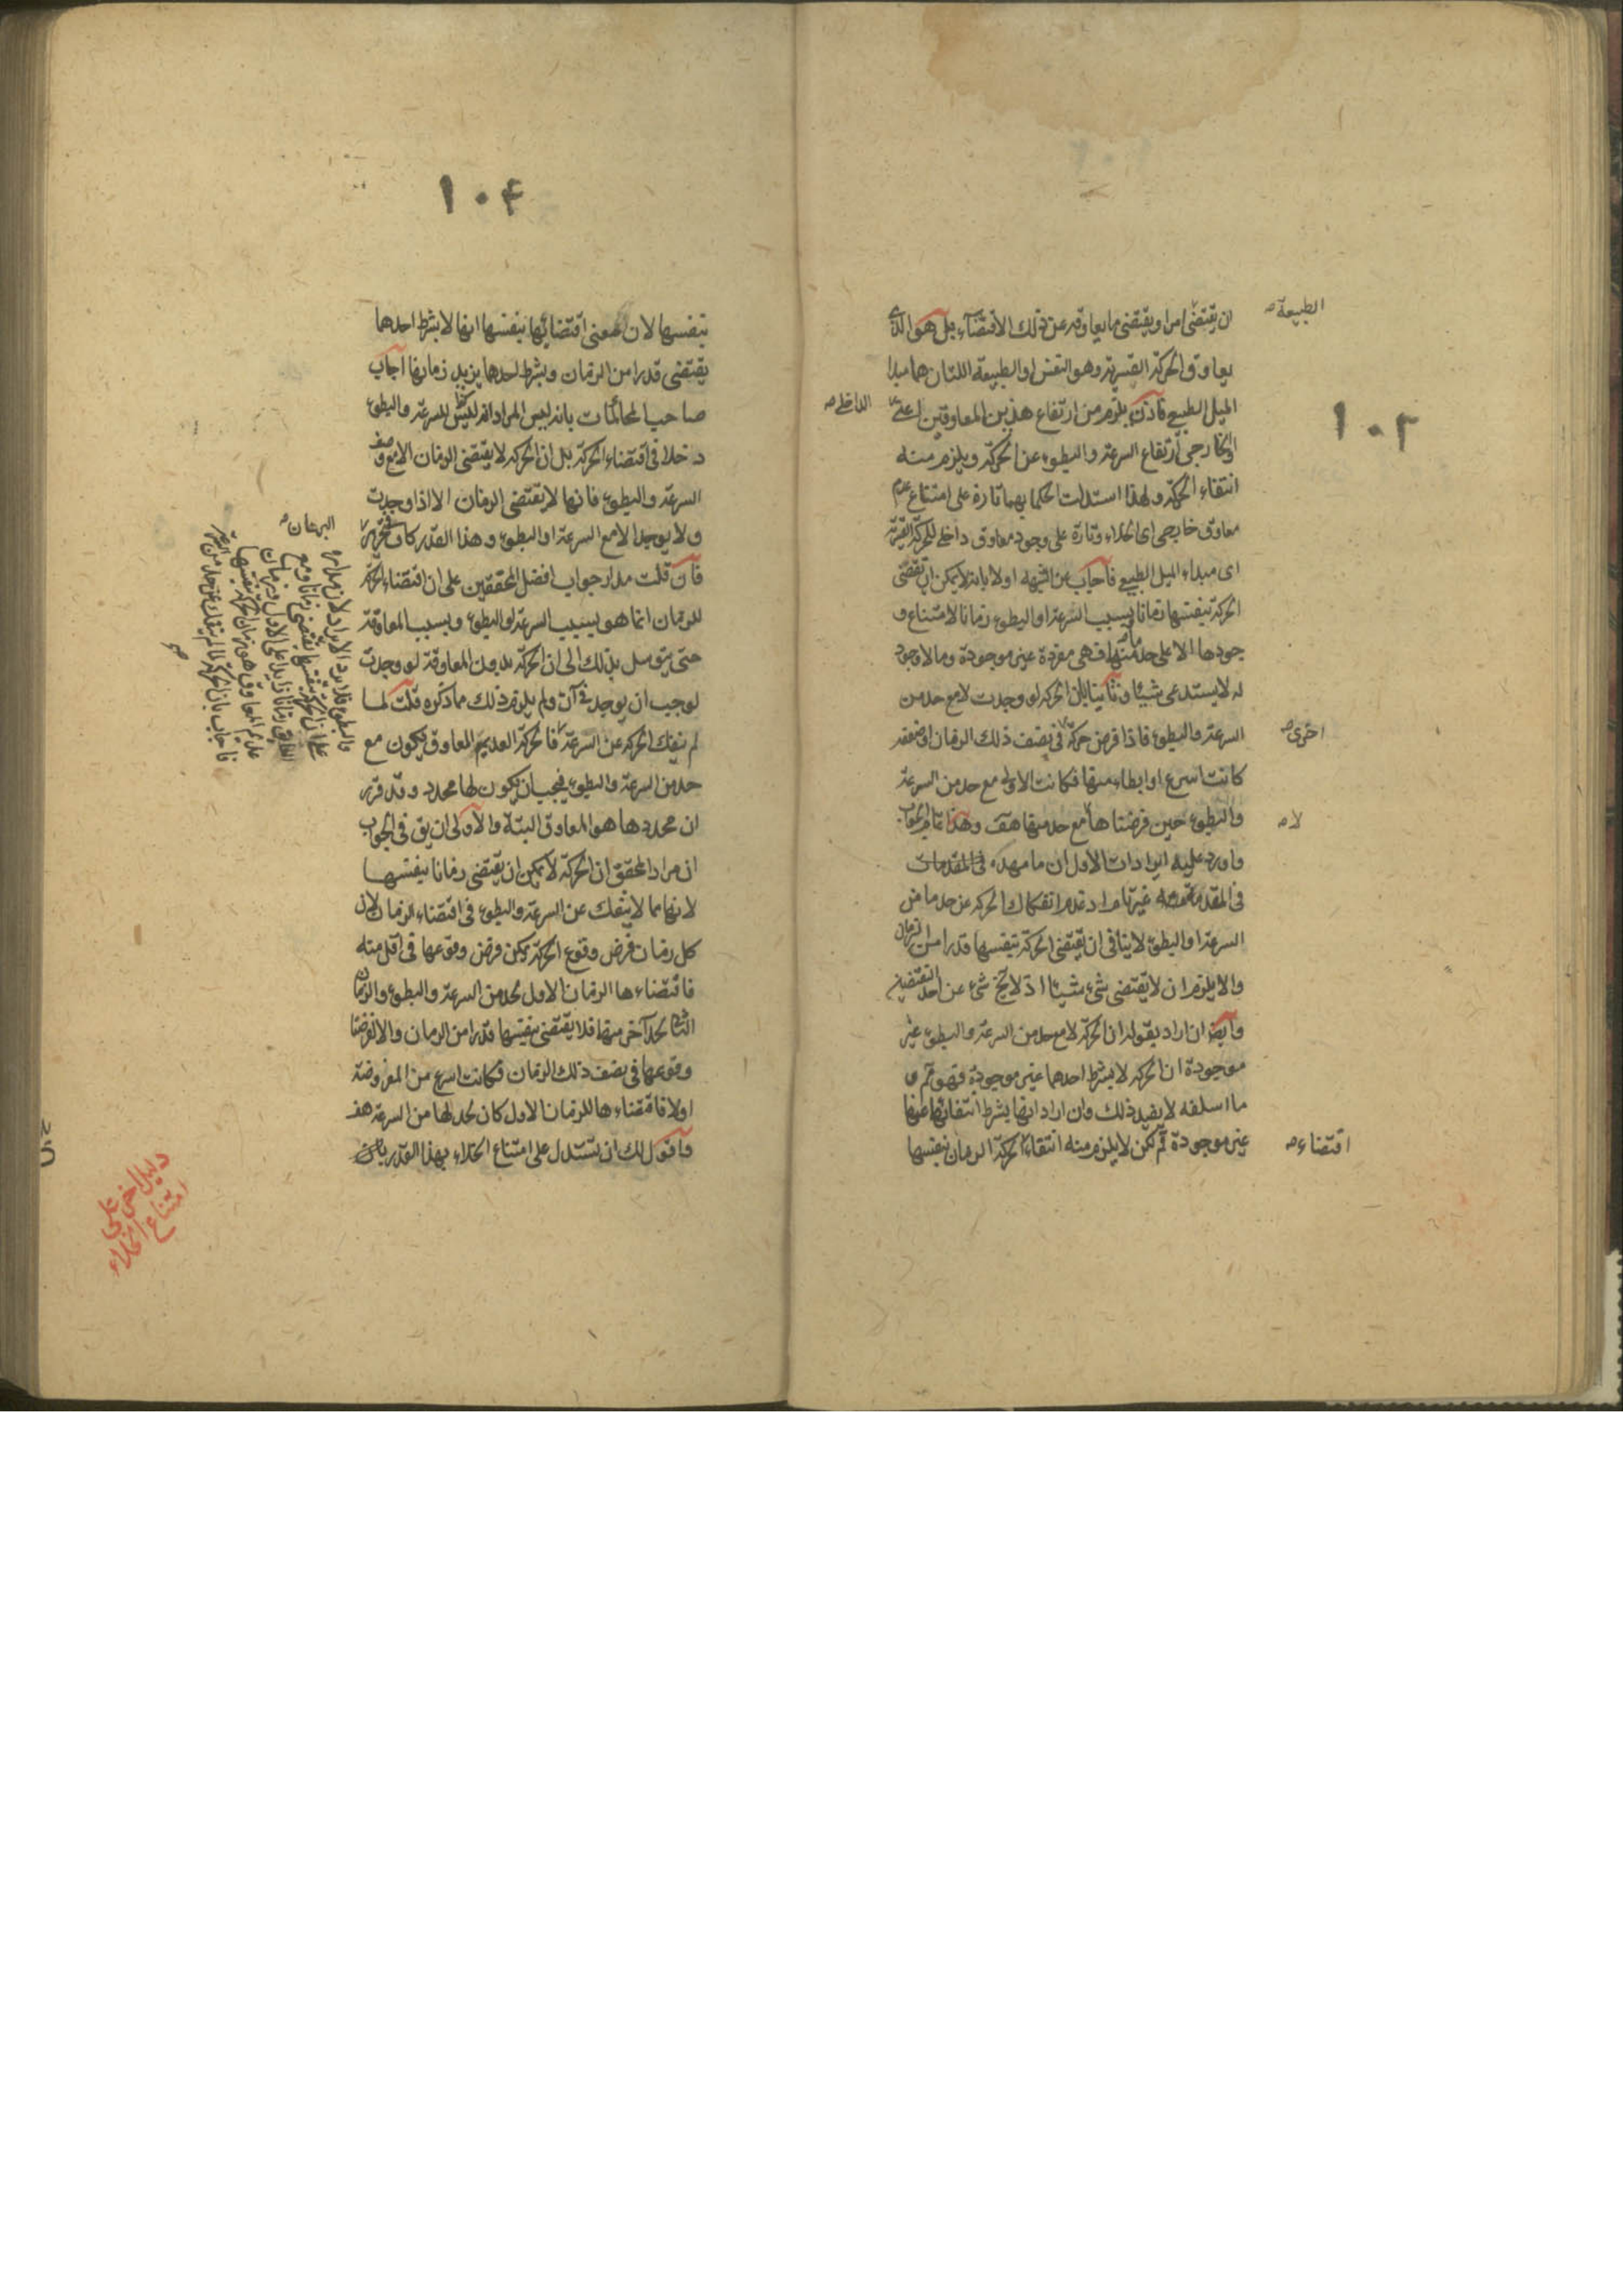 ١٠٣
الطبيعة
ان يقتضى امرا ويقتضى ما يعاوقه عن ذلك الاقتضاء بل هو الذى
يعاوق الحركة القسرية وهو النفس او الطبيعة اللتان هما مبدا
الميل الطبيعى فاذن يلزم من ارتفاع هذين المعاوقين اعنى
الداخلى
او الخارجى ارتفاع السرعة والبطوء عن الحركة ويلزم منه
انتفاء الحركة ولهذا استدلت الحكما بهما تارة على امتناع عدم
معاوق خارجى اى الخلاء وتارة على وجود معاوق داخلى للحركة القسرية
اى مبداء الميل الطبيعى فاجاب عن الشبهة اولا بانه لا يمكن ان تقتضى
الحركة بنفسها زمانا وبسبب السرعة او البطوء زمانا لامتناع و
جودها الا على حد ما منهما فهى مفردة غير موجودة وما لا وجود
له لا يستدعى شيئا وثانيا بان الحركة لو وجدت لا مع حد من
السرعة والبطوء فاذا فرض حركة فى نصف ذلك الزمان او ضعفه
اخرى
كانت اسرع او ابطاء منها فكانت الاولى مع حد من السرعة
والبطوء حين فرضناها مع حد منها هف وهذا تمام الجواب
لا
واورد عليه ايرادات الاول ان ما مهده فى المقدمات
فى المقدمة غير تام اذ عدم انفكاك الحركة عن حد ما من
السرعة او البطوء لا ينافى ان يقتضى الحركة بنفسها قدرا من الزمان
والا يلزم ان لا يقتضى شىء شيئا اذ لا يخ شىء عن احد النقيضين
وايضا ان اراد بقوله ان الحركة لا مع حد من السرعة والبطوء غير
موجودة ان الحركة لا بشرط احدهما غير موجودة فهو مم و
ما اسلفه لا يفيد ذلك وان اراد انها بشرط انتفائهما عنها
غير موجودة فم لكن لا يلزم منه انتفاء الحركة الزمان بنفسها
اقتضاء
١٠٤
بنفسها لان معنى اقتضائها بنفسها انها لا بشرط احدهما
يقتضى قدرا من الزمان وبشرط احدها يزيد زمانها اجاب
صاحب المحاكمات بانه ليس المراد انه ليس للسرعة والبطوء
دخلا فى اقتضاء الحركة بل ان الحركة لا يقتضى الزمان الا مع وصف
السرعة والبطوء فانها لا يقتضى الزمان الا اذا وجدت
ولا يوجد الا مع السرعة او البطوء وهذا القدر كاف فى تحرير
البرهان
فان قلت مدار جواب افضل المحققين على ان اقتضاء الحركة
للزمان انما هو بسبب السرعة او البطوء وبسبب المعاوقة
حتى يتوسل بذلك الى ان الحركة بدون المعاوقة لو وجدت
لوجب ان يوجد فى آن ولم يلزم ذلك مما ذكره قلت لما
لم ينفك الحركة عن السرعة فالحركة العديم المعاوق يكون مع
حد من السرعة والبطوء فيجب ان يكون لها محدد وقد قرر
ان محددها هو المعاوق البتة والاولى ان يق فى الجواب
ان مراد المحقق ان الحركة لا يمكن ان يقتضى زمانا بنفسها
لانها مما لا ينفك عن السرعة والبطوء فى اقتضاء الزمان لان
كل زمان فرض وقوع الحركة يمكن فرض وقوعها فى اقل منه
فاقتضاءها الزمان الاول لحد من السرعة والبطوء والزمان
الثانى لحد آخر منها فلا يقتضى بنفسها قدرا من الزمان والا لفرضنا
وقوعها فى نصف ذلك الزمان فكانت اسرع من المفروضة
اولا فاقتضاءها للزمان الاول كان لحد لها من السرعة هف
واقول لك ان تستدل على امتناع الخلاء بهذا القدر بان
والبطوء فلا يرد الايراد لان مداره
على ان الحركة بنفسها يقتضى زمانا ومع
دليل اخر على
امتناع الخلاء